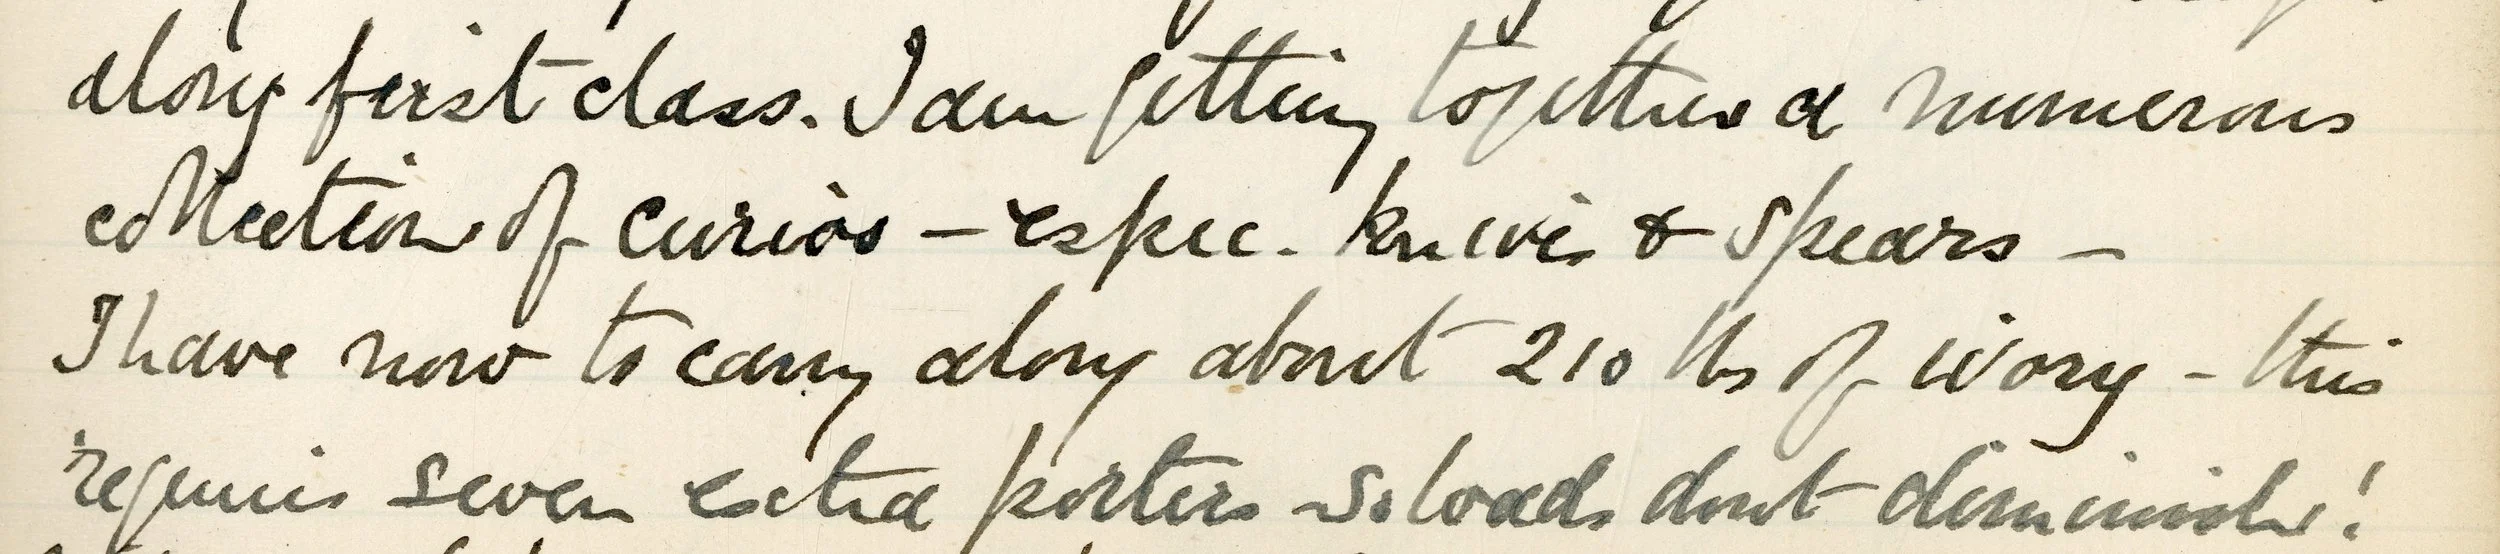 along first class. I am getting together a numerous
collection of curios - espec. knives & spears -
I have now to carry along about 210 lbs of ivory - this
requires seven extra porters - so loads dont diminish!